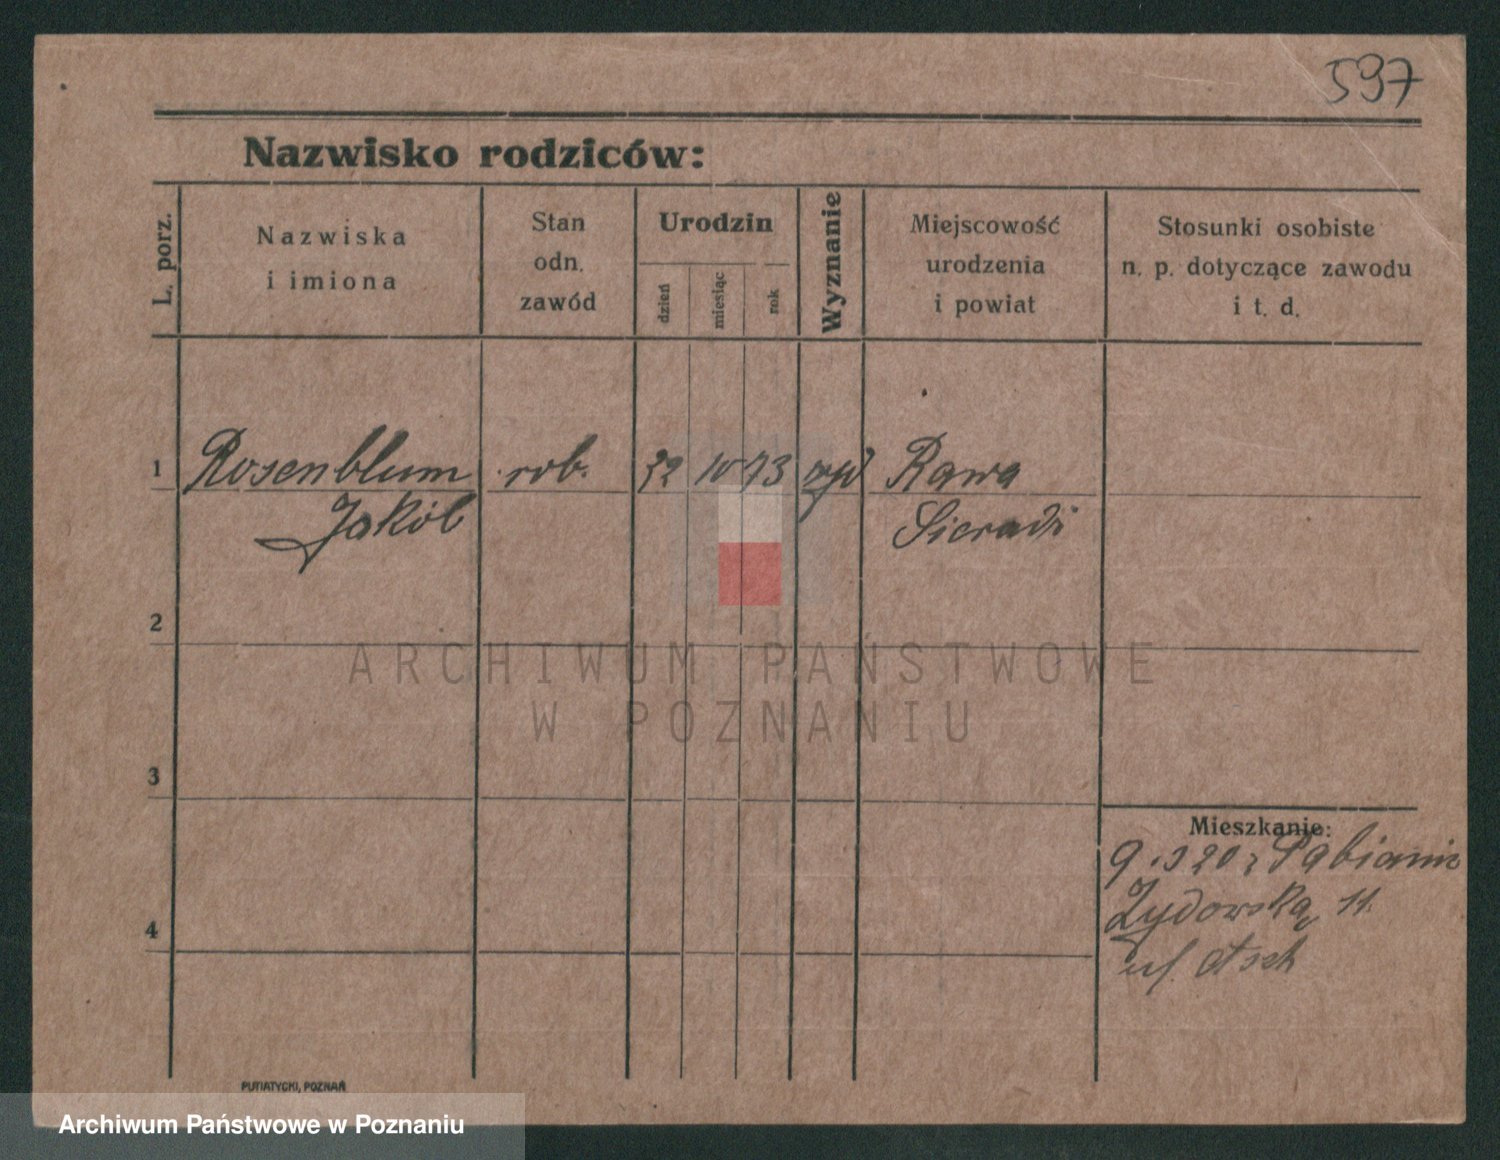 597
Nazwisko rodziców:
L. porz.
Nazwiska
i imiona
Stan
odn.
zawód
Urodzin
dzień
miesiąc
rok
Wyznanie
Miejscowość
urodzenia
i powiat
Stosunki osobiste
n. p. dotyczące zawodu
i t. d.
1 Rosenblum rob. 10 73 Rawa
Jakób Sieradz
2
ARCHIWUM PAŃSTWOWE
W POZNANIU
3
Mieszkanie:
Pabianic
Żydowska 11
4
PUTIATYCKI, POZNAŃ
Archiwum Państwowe w Poznaniu